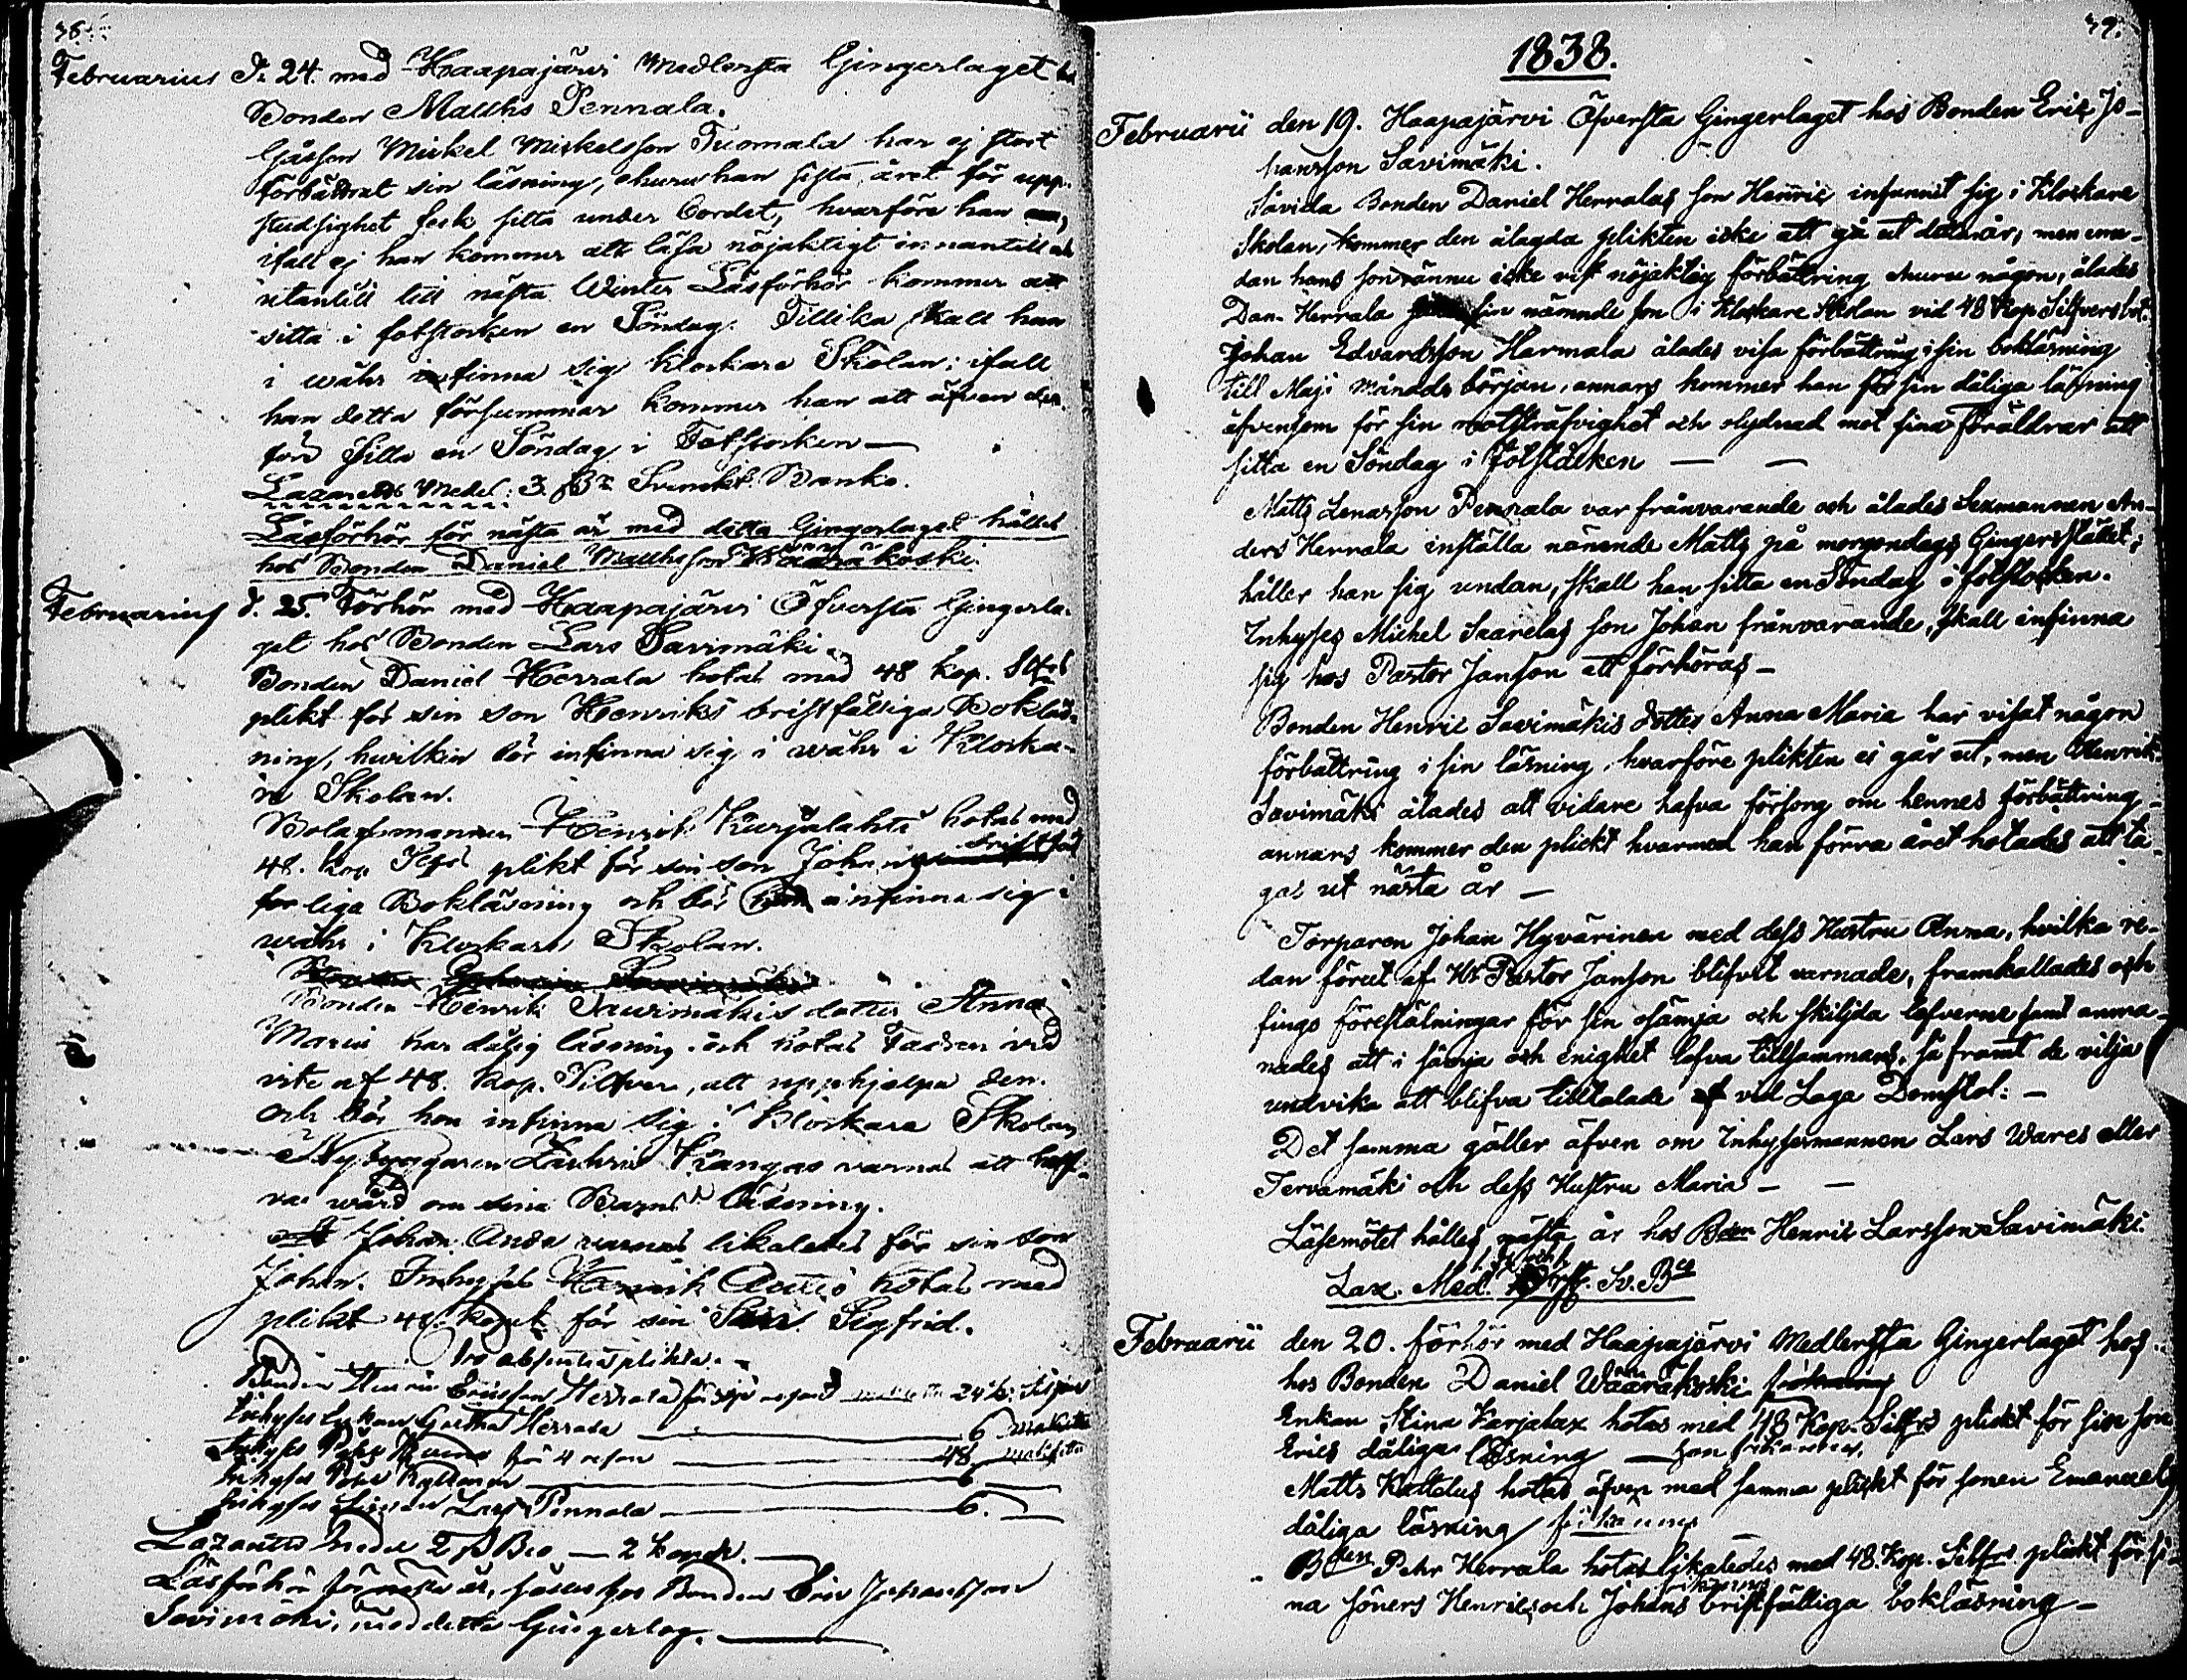 38.
Februarius D. 24. med Haapajärvi Medlersta Gingerlaget hos
Bonden Matths Pennala.
Gåssen Mickel Mickelsson Tuomala har ej stort
förbättrat sin läsning, ehuru han sista året för upp-
studsighet feck sitta under Ordet, hvarföre han
ifall ej han kommer att läsa nöjaktigt innantill och
utantill till nästa Winter Läsförhör kommer att
sitta i fotstocken en Söndag. Tillika skall han
i währ infinna sig Klockare Skolan; ifall
han detta försummar kommer han att äfven der-
före sitta en Söndag i Fotstocken —
Lazaretts Medel: 3 Svenskt Banko.
Läsförhör för nästa år med detta Gingerlaget hålles
hos Bonden Daniel Matthsson Wääräkoski.
Februarius d. 25. Förhör med Haapajärvi Öfversta Gingerla-
get hos Bonden Lars Savimäki.
Bonden Daniel Herrala hotas med 48 kop. Silfvers
plikt för sin son Henriks bristfälliga Bokläs-
ning, hvilken bör infinna sig i währ i Klocka-
re Skolan.
Bolagsmannen Henrik Kurjalahti hotas med
48. kop plikt för sin son Johan bristfäl
liga Bokläsning och bör infinna sig i
währ i Klockare Skolan.
Bonden Henrik Savimäkis dotter Anna
Maria har dålig läsning och hotas Fadren vid
vite af 48. kop. Silfver, att upphjelpa den.
och bör hon infinna sig i Klockare Skolan
Nybyggaren Zachris Kangas varnas att haf-
va wård om sina Barns Läsning.
Johan Anda varnas likaledes för sin son
Johan. Inhyses Henrik Autio hotas med
plikt 48. kopek för sin Son Sigfrid.
Pro absentia plikta.
Bonden Henric Ericsson Herrala för sju resor 24 k.
Inhyses Enkan Greetha Herrala — 6
Inhyses för 4 resor — 48
Inhyses Peter Kyllönen — 6
Inhyses Lars Pennala — 6.
Lazaretts Medel 2 ß Bco — 2 kopek. —
Läsförhör för nästa år, hålles hos Bonden Eric Johansson
Savimäki, med detta Gingerlag. —
39.
1838.
Februarii den 19. Haapajärvi Öfversta Gingerlaget hos Bonden Eric Jo-
hansson Savimäki.
Savida Bonden Daniel Herralas son Henric infunnit sig i Klockare
Skolan, kommer den ålagda plikten icke att gå ut detta år, men eme-
dan hans son ännu icke vist nöjaktig förbättring ehuru någon, ålades
Dan. Herrala sin nämnde son i Klockare Skolan vid 48 Kop Silfvers bot.
Johan Edvardsson Harmala ålades visa förbättring i sin bokläsning
till Maji Månads början, annars kommer han för sin dåliga läsning
äfvensom för sin motsträfvighet och olydnad mot sina Föräldrar att
sitta en Söndag i Fotstocken — —
Matts Lenasson Pennala var frånvarande och ålades Sexmannen An-
ders Herrala inställa nämnde Matts på morgondags Gingersstället;
håller han sig undan, skall han sitta en Söndag i fotstocken.
Inhyses Michel Saarelas son Johan frånvarande, skall infinna
sig hos Pastor Janson att förhöras —
Bonden Henric Savimäkis dotter Anna Maria har visat någon
förbättring i sin läsning, hvarföre plikten ej går ut, men Henrik
Savimäki ålades att vidare hafva försorg om hennes förbättring
annars kommer den plickt hvarmed han förra året hotades att ta-
gas ut nästa år —
Torparen Johan Hyvärinen med dess Hustru Anna, hvilka re-
dan förut af Hr Pastor Janson blifvit varnade, framkallades och
fingo föreställningar för sin osämja och skiljda lefverne samt anma-
nades att i sämja och enighet lefva tillsammans, så framt de vilja
undvika att blifva tilltalade vid Laga Domstol: —
Det samma gäller äfven om Inhysesmannen Lars Wares eller
Tervamäki och dess Hustru Maria — —
Läsemötet hålles nästa år hos Henric Larsson Savimäki.
Laz. Med. Sv. Bco
Februarii den 20. förhör med Haapajärvi Medlersta Gingerlaget hos
hos Bonden Daniel Wääräkoski
Enkan Stina Karjalax hotas med 48 Kop. Silfrs plickt för sin son
Erics dåliga läsning —
Matts Kattelus hotas äfven med samma plickt för sonen Emanuels
dåliga läsning
Bden Pehr Herrala hotas likaledes med 48. Kop. Silfrs plickt för si-
na söners Henrics och Johans bristfälliga bokläsning —